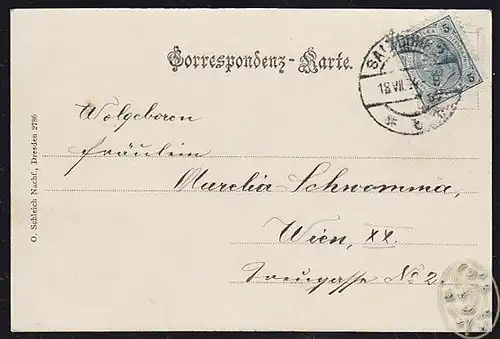 Correspondenz-Karte.
SALZBURG 2
18 VII
5
5
Wolgeboren
Fräulein
Aurelia Schwomma,
Wien, XX.
No 2.
O. Schleich Nachf., Dresden 2786